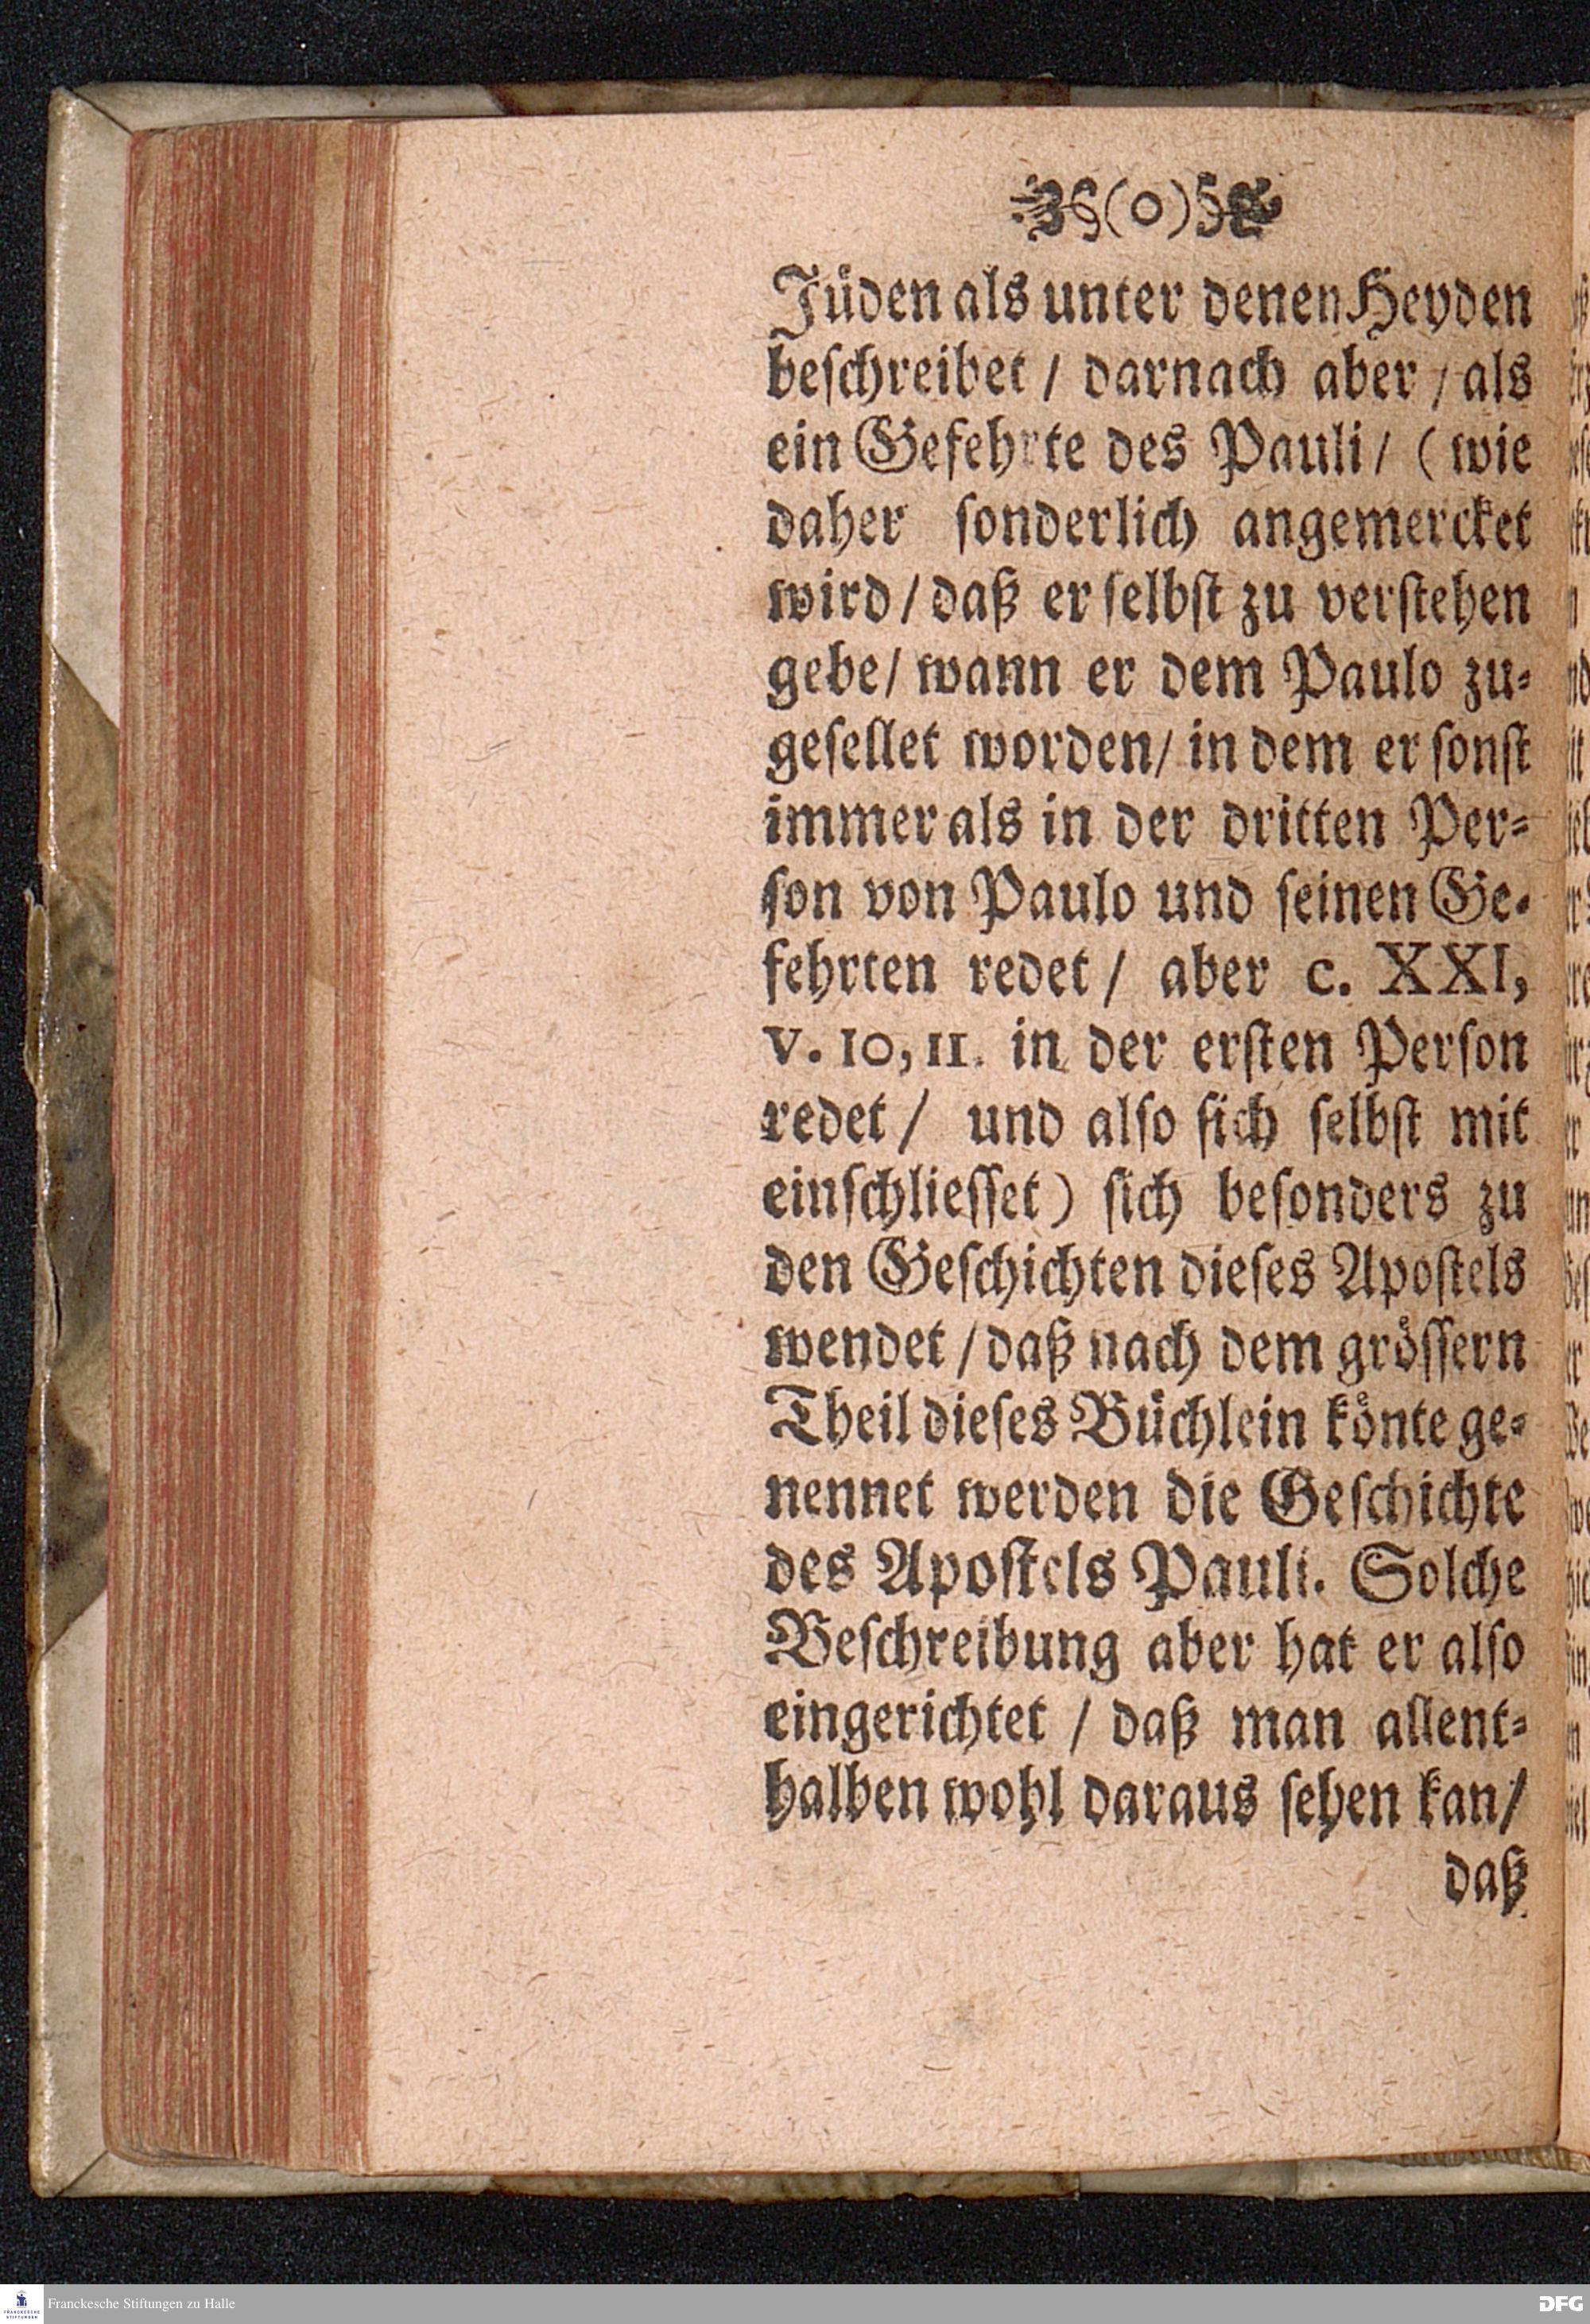 (0)
Jüden als unter denen Heyden
beschreibet / darnach aber / als
ein Gefehrte des Pauli / ( wie
daher sonderlich angemercket
wird / daß er selbst zu verstehen
gebe / wann er dem Paulo zu-
gesellet worden / in dem er sonst
immer als in der dritten Per-
son von Paulo und seinen Ge-
fehrten redet / aber c. XXI,
v. 10, 11. in der ersten Person
redet / und also sich selbst mit
einschliesset ) sich besonders zu
den Geschichten dieses Apostels
wendet / daß nach dem grössern
Theil dieses Büchlein könte ge-
nennet werden die Geschichte
des Apostels Pauli. Solche
Beschreibung aber hat er also
eingerichtet / daß man allent-
halben wohl daraus sehen kan /
daß
Franckesche Stiftungen zu Halle
DFG